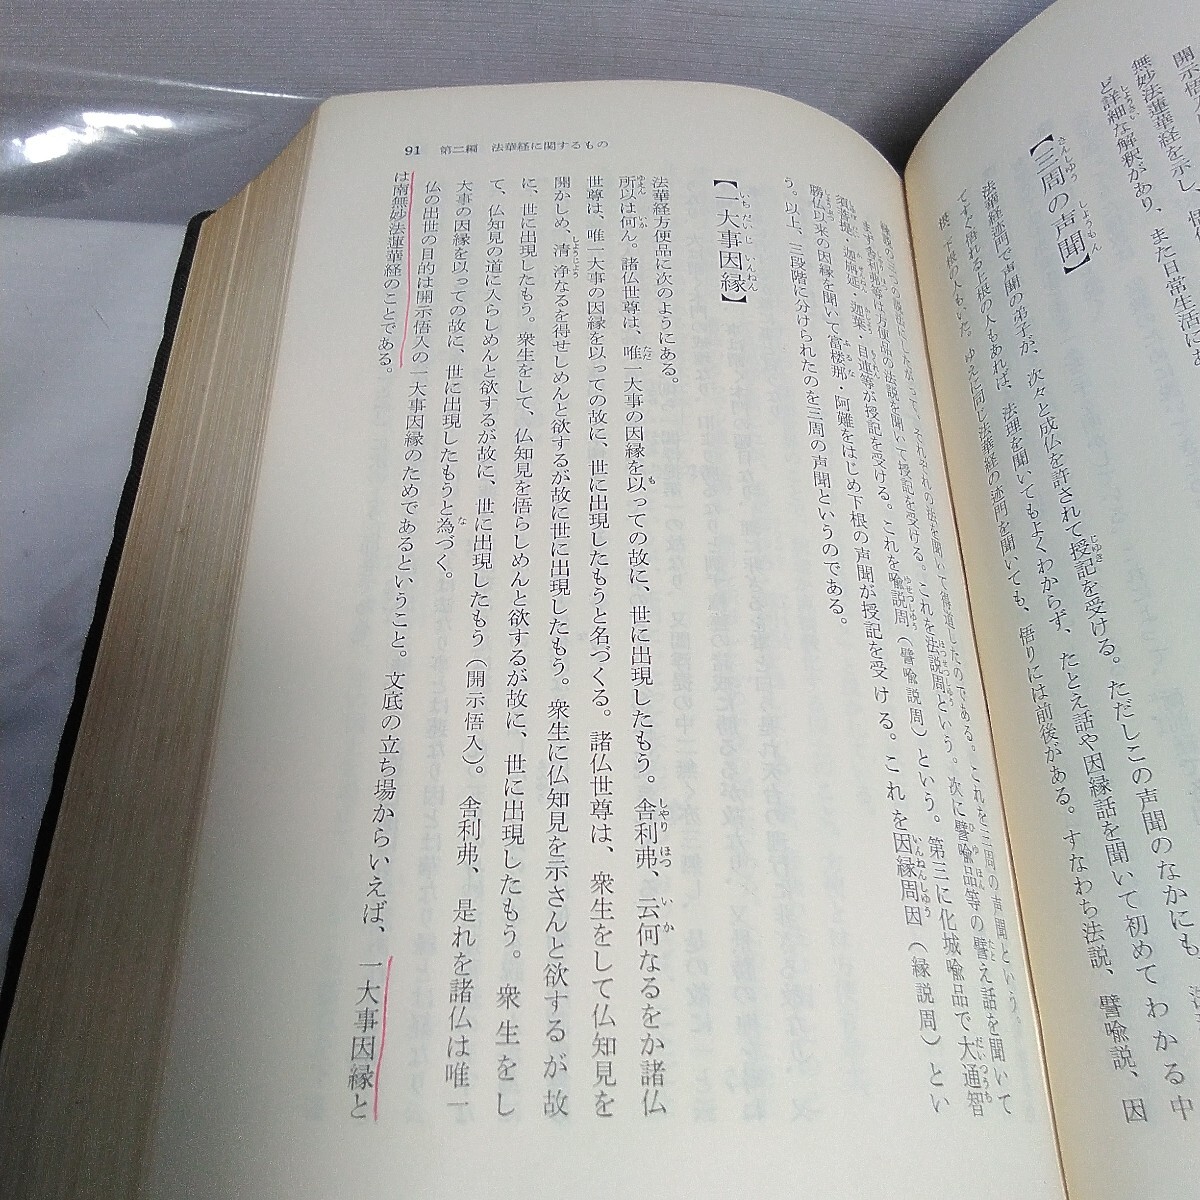 開示悟
無妙法蓮華経を示し、
ど詳細な解釈があり、また日常生活にあ
【三周の声聞】
法華経迹門で声聞の弟子が、次々と成仏を許されて授記を受ける。ただしこの声聞のなかにも、
てすぐ悟れる上根の人もあれば、法理を聞いてもよくわからず、たとえ話や因縁話を聞いて初めてわかる中
根、下根の人もいた。ゆえに同じ法華経の迹門を聞いても、悟りには前後がある。すなわち法説、譬喩説、因
縁説の三つの説法にしたがって、それぞれの法を聞いて得道したのである。これを三周の声聞という。
まず舎利弗等は方便品の法説を聞いて授記を受ける。これを法説周という。次に譬喩品等の譬え話を聞いて
須菩提・迦旃延・迦葉・目連等が授記を受ける。これを喩説周(譬喩説周)という。第三に化城喩品で大通智
勝仏以来の因縁を聞いて富楼那・阿難をはじめ下根の声聞が授記を受ける。これを因縁周因(縁説周)とい
う。以上、三段階に分けられたのを三周の声聞というのである。
【一大事因縁】
法華経方便品に次のようにある。
所以は何ん。諸仏世尊は、唯一大事の因縁を以っての故に、世に出現したもう。舎利弗、云何なるをか諸仏
世尊は、唯一大事の因縁を以っての故に、世に出現したもうと名づくる。諸仏世尊は、衆生をして仏知見を
開かしめ、清浄なるを得せしめんと欲するが故に世に出現したもう。衆生に仏知見を示さんと欲するが故
に、世に出現したもう。衆生をして、仏知見を悟らしめんと欲するが故に、世に出現したもう。衆生をし
て、仏知見の道に入らしめんと欲するが故に、世に出現したもう(開示悟入)。舎利弗、是れを諸仏は唯一
大事の因縁を以っての故に、世に出現したもうと為づく。
仏の出世の目的は開示悟入の一大事因縁のためであるということ。文底の立ち場からいえば、一大事因縁と
は南無妙法蓮華経のことである。
91 第二編 法華経に関するもの